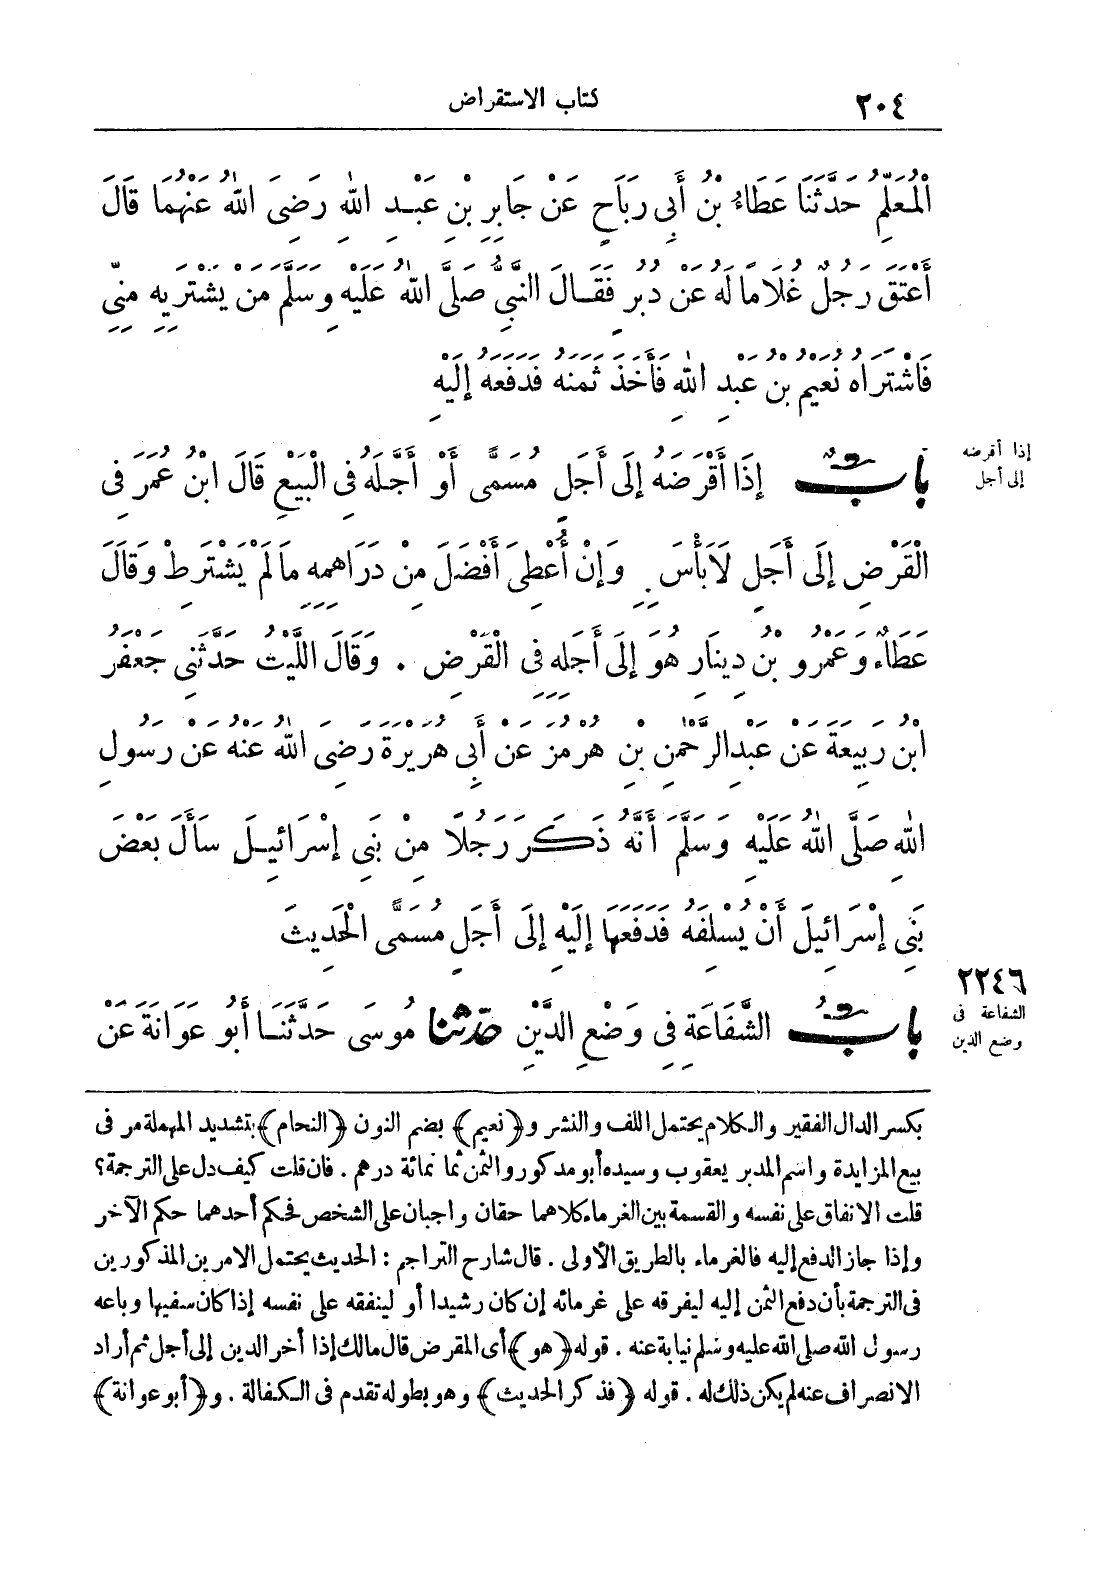 ٢٠٤ كتاب الاستقراض
الْمُعَلِّمِ حَدَّثَنَا عَطَاءُ بْنُ أَبِي رَبَاحٍ عَنْ جَابِرِ بْنِ عَبْدِ اللهِ رَضِىَ اللهُ عَنْهُمَا قَالَ
أَعْتَقَ رَجُلٌ غُلَامًا لَهُ عَنْ دُبُرٍ فَقَالَ النَّبِيُّ صَلَّى اللهُ عَلَيْهِ وَسَلَّمَ مَنْ يَشْتَرِيهِ مِنِّي
فَاشْتَرَاهُ نُعَيْمُ بْنُ عَبْدِ اللهِ فَأَخَذَ ثَمَنَهُ فَدَفَعَهُ إِلَيْهِ
إذا أقرضه
إلى أجل
بَابٌ إِذَا أَقْرَضَهُ إِلَى أَجَلٍ مُسَمًّى أَوْ أَجَّلَهُ فِى الْبَيْعِ قَالَ ابْنُ عُمَرَ فِى
الْقَرْضِ إِلَى أَجَلٍ لَا بَأْسَ بِهِ وَإِنْ أُعْطِىَ أَفْضَلَ مِنْ دَرَاهِمِهِ مَا لَمْ يَشْتَرِطْ وَقَالَ
عَطَاءٌ وَعَمْرُو بْنُ دِينَارٍ هُوَ إِلَى أَجَلِهِ فِى الْقَرْضِ . وَقَالَ اللَّيْثُ حَدَّثَنِى جَعْفَرُ
ابْنُ رَبِيعَةَ عَنْ عَبْدِ الرَّحْمٰنِ بْنِ هُرْمُزَ عَنْ أَبِى هُرَيْرَةَ رَضِىَ اللهُ عَنْهُ عَنْ رَسُولِ
اللهِ صَلَّى اللهُ عَلَيْهِ وَسَلَّمَ أَنَّهُ ذَكَرَ رَجُلًا مِنْ بَنِى إِسْرَائِيلَ سَأَلَ بَعْضَ
بَنِى إِسْرَائِيلَ أَنْ يُسْلِفَهُ فَدَفَعَهَا إِلَيْهِ إِلَى أَجَلٍ مُسَمًّى الْحَدِيثَ
٢٢٤٦
الشفاعة فى
وضع الدين
بَابُ الشَّفَاعَةِ فِى وَضْعِ الدَّيْنِ حَدَّثَنَا مُوسَى حَدَّثَنَا أَبُو عَوَانَةَ عَنْ
بكسر الدال الفقير والكلام يحتمل اللف والنشر و﴿نعيم﴾ بضم النون ﴿النحام﴾ بتشديد المهملة مر فى
بيع المزايدة واسم المدبر يعقوب وسيده أبو مذكور والثمن ثمانمائة درهم . فان قلت كيف دل على الترجمة؟
قلت الانفاق على نفسه والقسمة بين الغرماء كلاهما حقان واجبان على الشخص فحكم أحدهما حكم الآخر
وإذا جاز الدفع إليه فالغرماء بالطريق الأولى . قال شارح التراجم : الحديث يحتمل الامرين المذكورين
فى الترجمة بأن دفع الثمن إليه ليفرقه على غرمائه إن كان رشيدا أو لينفقه على نفسه إذا كان سفيها وباعه
رسول الله صلى الله عليه وسلم نيابة عنه . قوله ﴿هو﴾ أى المقرض قال مالك إذا أخر الدين إلى أجل ثم أراد
الانصراف عنه لم يكن ذلك له . قوله ﴿فذكر الحديث﴾ وهو بطوله تقدم فى الكفالة . و﴿أبو عوانة﴾